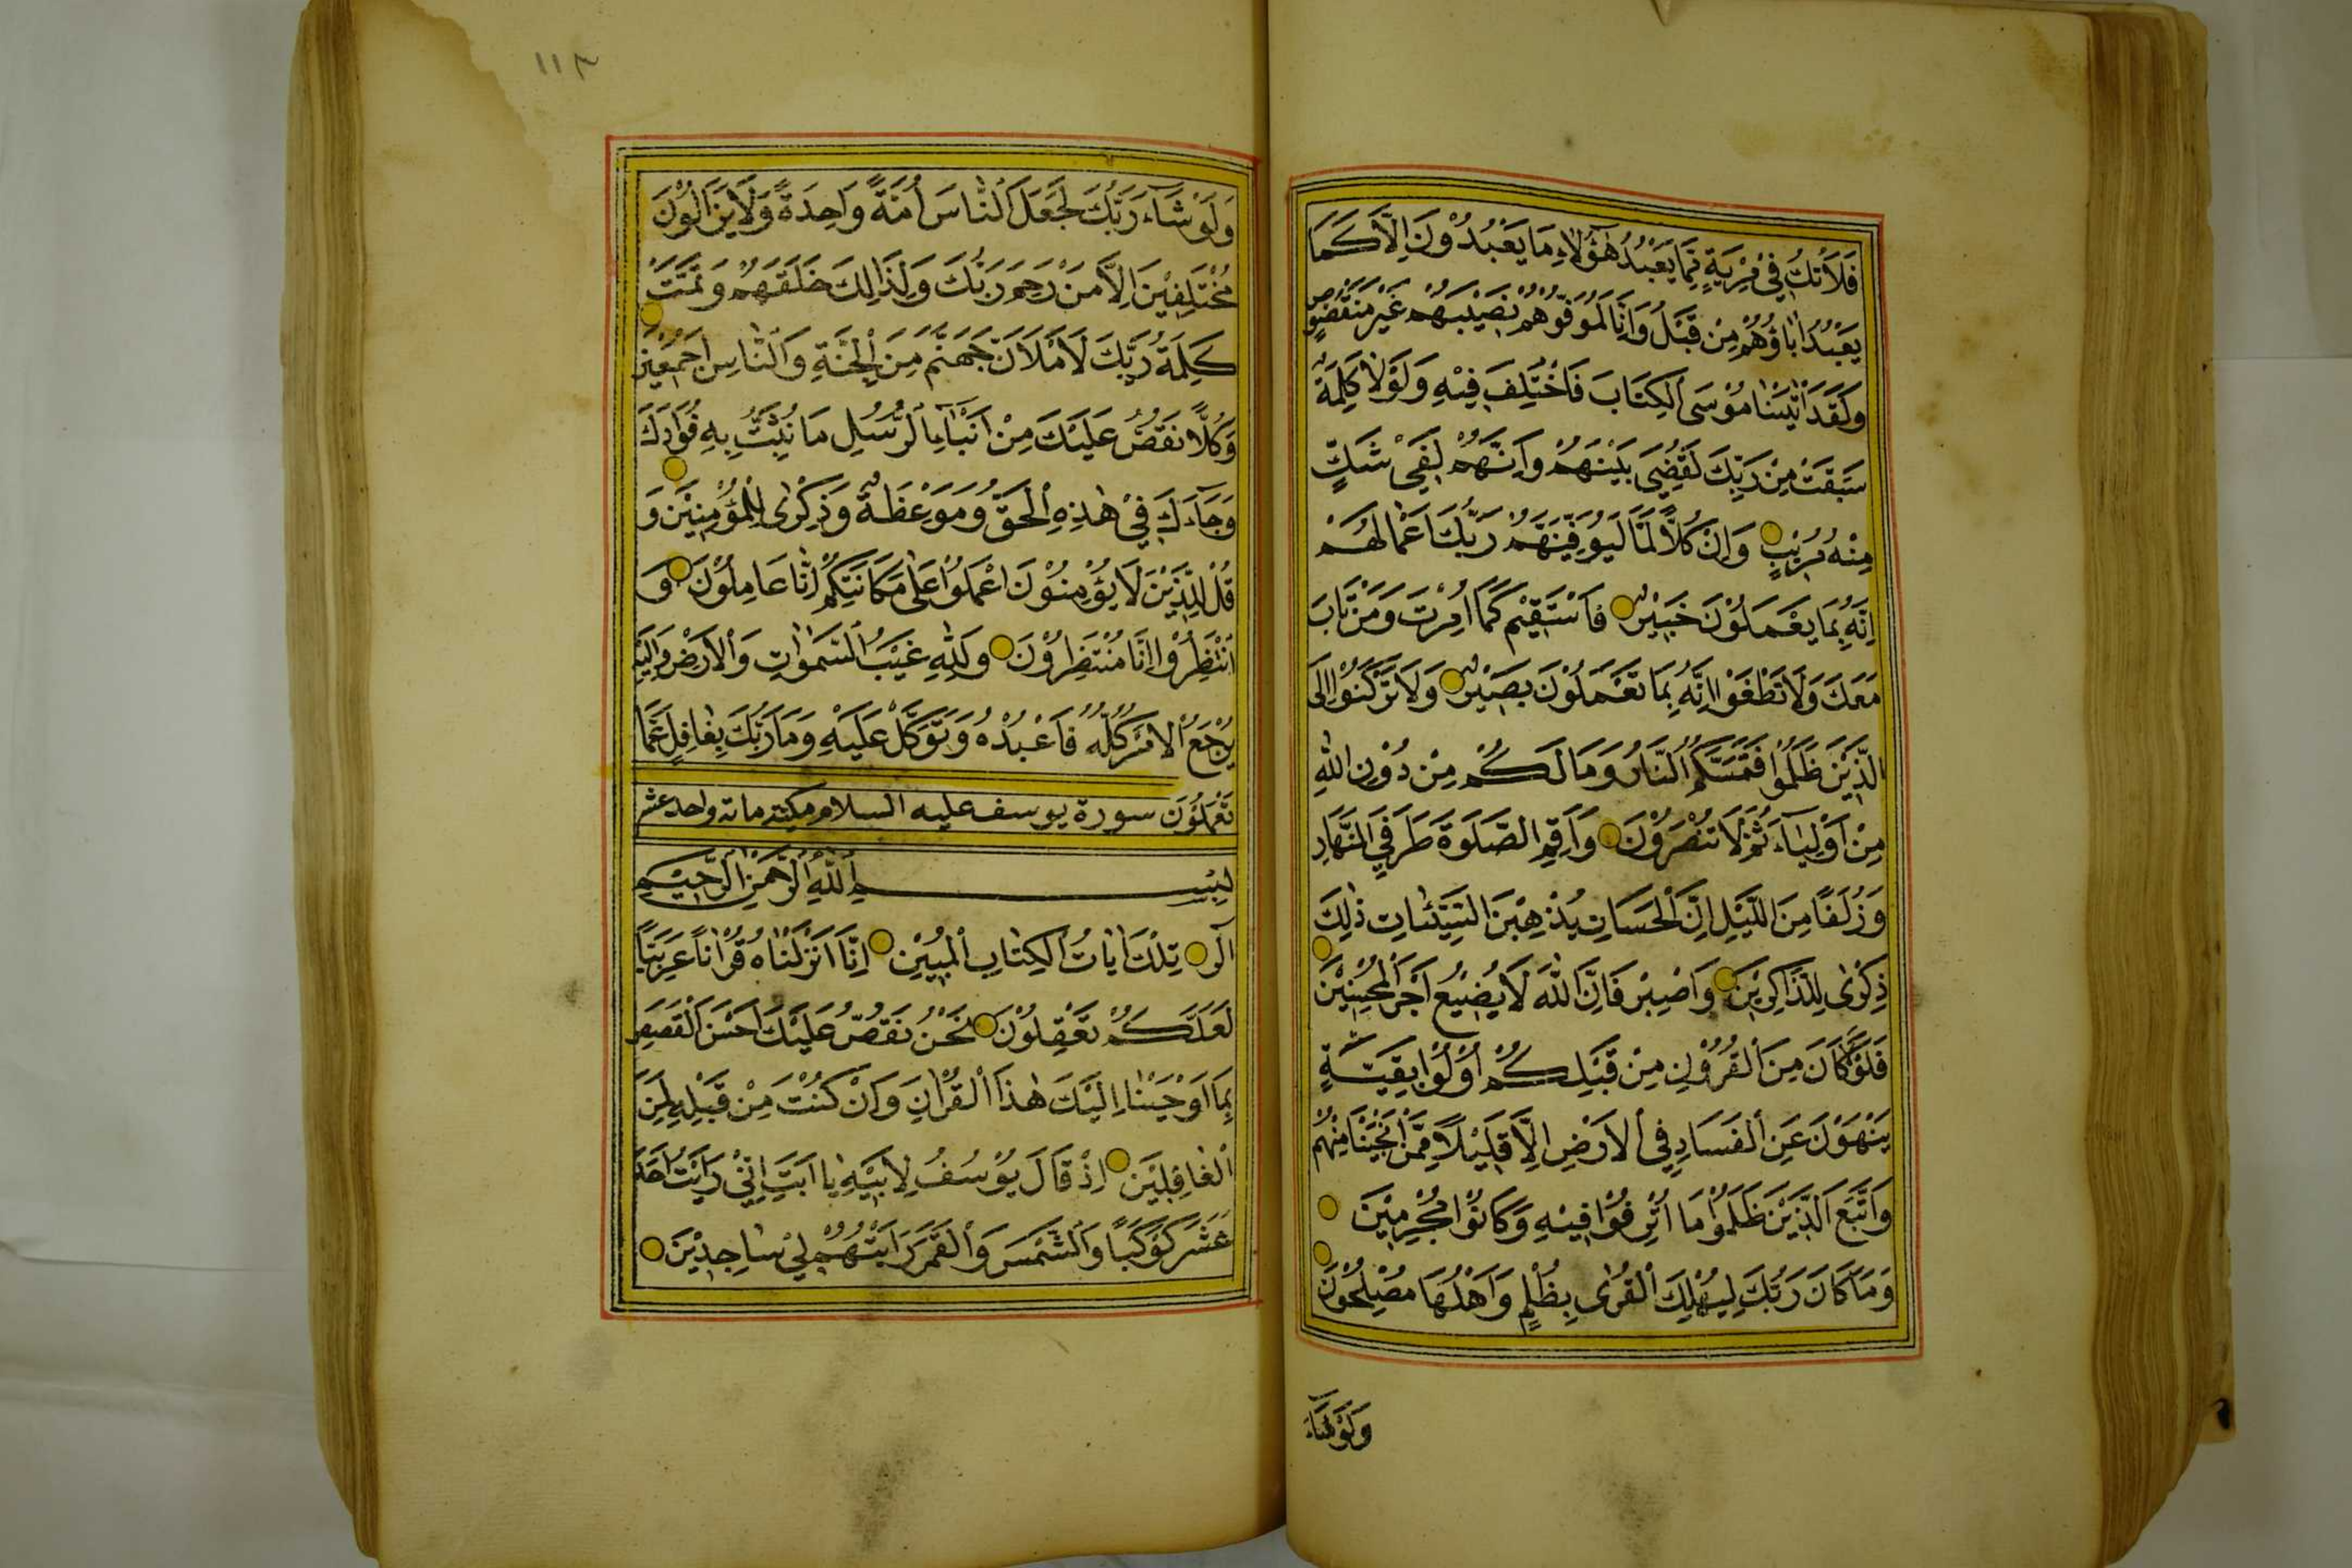 فَلَا تَكُ فِي مِرْيَةٍ مِمَّا يَعْبُدُ هٰٓؤُلَاءِ مَا يَعْبُدُونَ اِلَّا كَمَا
يَعْبُدُ اٰبَاؤُهُمْ مِنْ قَبْلُ وَاِنَّا لَمُوَفُّوهُمْ نَصِيْبَهُمْ غَيْرَ مَنْقُوصٍ
وَلَقَدْ اٰتَيْنَا مُوْسَى الْكِتَابَ فَاخْتُلِفَ فِيْهِ وَلَوْلَا كَلِمَةٌ
سَبَقَتْ مِنْ رَبِّكَ لَقُضِيَ بَيْنَهُمْ وَاِنَّهُمْ لَفِيْ شَكٍّ
مِنْهُ مُرِيْبٍ وَاِنَّ كُلًّا لَمَّا لَيُوَفِّيَنَّهُمْ رَبُّكَ اَعْمَالَهُمْ
اِنَّهُ بِمَا يَعْمَلُوْنَ خَبِيْرٌ فَاسْتَقِيْم كَمَا اُمِرْتَ وَمَنْ تَابَ
مَعَكَ وَلَا تَطْغَوْا اِنَّهُ بِمَا تَعْمَلُوْنَ بَصِيْرٌ وَلَا تَرْكَنُوْا اِلَى
الَّذِيْنَ ظَلَمُوْا فَتَمَسَّكُمُ النَّارُ وَمَا لَكُمْ مِنْ دُوْنِ اللّٰهِ
مِنْ اَوْلِيَآءَ ثُمَّ لَا تُنْصَرُوْنَ وَاَقِمِ الصَّلٰوةَ طَرَفَيِ النَّهَارِ
وَزُلَفًا مِنَ اللَّيْلِ اِنَّ الْحَسَنَاتِ يُذْهِبْنَ السَّيِّئَاتِ ذٰلِكَ
ذِكْرٰى لِلذَّاكِرِيْنَ وَاصْبِرْ فَاِنَّ اللّٰهَ لَا يُضِيْعُ اَجْرَ الْمُحْسِنِيْنَ
فَلَوْلَا كَانَ مِنَ الْقُرُوْنِ مِنْ قَبْلِكُمْ اُولُوْا بَقِيَّةٍ
يَنْهَوْنَ عَنِ الْفَسَادِ فِي الْاَرْضِ اِلَّا قَلِيْلًا مِمَّنْ اَنْجَيْنَا مِنْهُمْ
وَاتَّبَعَ الَّذِيْنَ ظَلَمُوْا مَا اُتْرِفُوْا فِيْهِ وَكَانُوْا مُجْرِمِيْنَ
وَمَا كَانَ رَبُّكَ لِيُهْلِكَ الْقُرٰى بِظُلْمٍ وَاَهْلُهَا مُصْلِحُوْنَ
وَلَوْ شَاءَ
١١٣
وَلَوْ شَآءَ رَبُّكَ لَجَعَلَ النَّاسَ اُمَّةً وَاحِدَةً وَلَا يَزَالُوْنَ
مُخْتَلِفِيْنَ اِلَّا مَنْ رَحِمَ رَبُّكَ وَلِذٰلِكَ خَلَقَهُمْ وَتَمَّتْ
كَلِمَةُ رَبِّكَ لَاَمْلَاَنَّ جَهَنَّمَ مِنَ الْجِنَّةِ وَالنَّاسِ اَجْمَعِيْنَ
وَكُلًّا نَقُصُّ عَلَيْكَ مِنْ اَنْبَاءِ الرُّسُلِ مَا نُثَبِّتُ بِهِ فُؤَادَكَ
وَجَآءَكَ فِيْ هٰذِهِ الْحَقُّ وَمَوْعِظَةٌ وَذِكْرٰى لِلْمُؤْمِنِيْنَ وَ
قُلْ لِلَّذِيْنَ لَا يُؤْمِنُوْنَ اعْمَلُوْا عَلٰى مَكَانَتِكُمْ اِنَّا عَامِلُوْنَ وَ
انْتَظِرُوْا اِنَّا مُنْتَظِرُوْنَ وَلِلّٰهِ غَيْبُ السَّمٰوَاتِ وَالْاَرْضِ وَاِلَيْهِ
يُرْجَعُ الْاَمْرُ كُلُّهُ فَاعْبُدْهُ وَتَوَكَّلْ عَلَيْهِ وَمَا رَبُّكَ بِغَافِلٍ عَمَّا
تَعْمَلُوْنَ سورة يوسف عليه السلام مكية مائة واحد عشر
بِسْمِ اللّٰهِ الرَّحْمٰنِ الرَّحِيْمِ
الٓرٰ تِلْكَ اٰيَاتُ الْكِتَابِ الْمُبِيْنِ اِنَّا اَنْزَلْنَاهُ قُرْاٰنًا عَرَبِيًّا
لَعَلَّكُمْ تَعْقِلُوْنَ نَحْنُ نَقُصُّ عَلَيْكَ اَحْسَنَ الْقَصَصِ
بِمَا اَوْحَيْنَا اِلَيْكَ هٰذَا الْقُرْاٰنَ وَاِنْ كُنْتَ مِنْ قَبْلِهِ لَمِنَ
الْغَافِلِيْنَ اِذْ قَالَ يُوْسُفُ لِاَبِيْهِ يَا اَبَتِ اِنِّيْ رَاَيْتُ اَحَدَ
عَشَرَ كَوْكَبًا وَالشَّمْسَ وَالْقَمَرَ رَاَيْتُهُمْ لِيْ سَاجِدِيْنَ